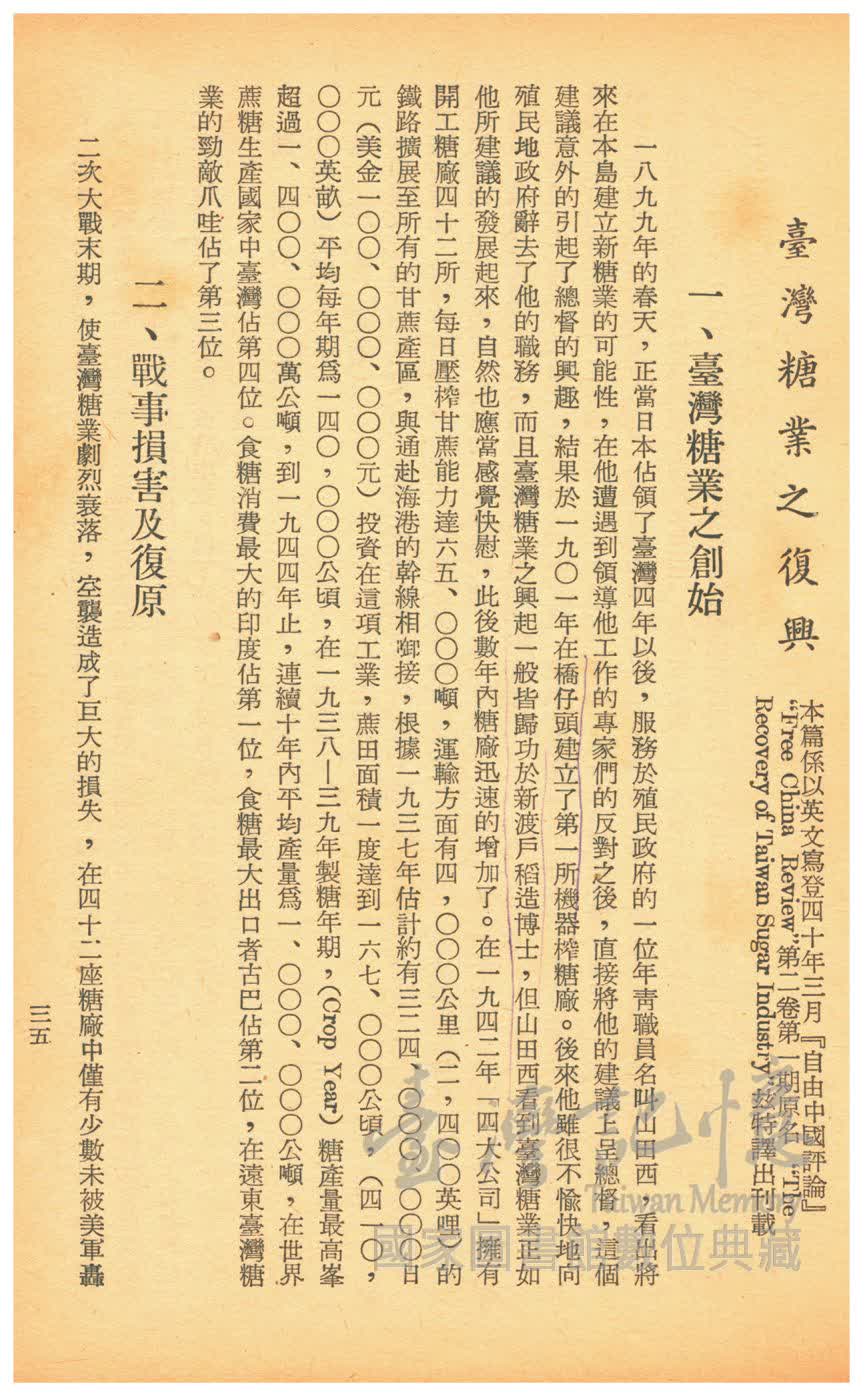 臺灣糖業之復興
本篇係以英文寫登四十年三月『自由中國評論』
“Free China Review”第二卷第一期原名“The
Recovery of Taiwan Sugar Industry”玆特譯出刊載
一、臺灣糖業之創始
一八九九年的春天，正當日本佔領了臺灣四年以後，服務於殖民政府的一位年靑職員名叫山田西，看出將
來在本島建立新糖業的可能性，在他遭遇到領導他工作的專家們的反對之後，直接將他的建議上呈總督，這個
建議意外的引起了總督的興趣，結果於一九〇一年在橋仔頭建立了第一所機器榨糖廠。後來他雖很不愉快地向
殖民地政府辭去了他的職務，而且臺灣糖業之興起一般皆歸功於新渡戶稻造博士，但山田西看到臺灣糖業正如
他所建議的發展起來，自然也應當感覺快慰，此後數年內糖廠迅速的增加了。在一九四二年「四大公司」擁有
開工糖廠四十二所，每日壓榨甘蔗能力達六五、〇〇〇噸，運輸方面有四，〇〇〇公里（二，四〇〇英哩）的
鐵路擴展至所有的甘蔗產區，與通赴海港的幹線相啣接，根據一九三七年估計約有三二四、〇〇〇、〇〇〇日
元（美金一〇〇、〇〇〇、〇〇〇元）投資在這項工業，蔗田面積一度達到一六七、〇〇〇公頃，（四一〇，
〇〇〇英畝）平均每年期爲一四〇，〇〇〇公頃，在一九三八—三九年製糖年期，(Crop Year) 糖產量最高峯
超過一、四〇〇、〇〇〇萬公噸，到一九四四年止，連續十年內平均產量爲一、〇〇〇、〇〇〇公噸，在世界
蔗糖生產國家中臺灣佔第四位。食糖消費最大的印度佔第一位，食糖最大出口者古巴佔第二位，在遠東臺灣糖
業的勁敵爪哇佔了第三位。
二、戰事損害及復原
二次大戰末期，使臺灣糖業劇烈衰落，空襲造成了巨大的損失，在四十二座糖廠中僅有少數未被美軍轟
三五
臺灣記憶
Taiwan Memory
國家圖書館數位典藏